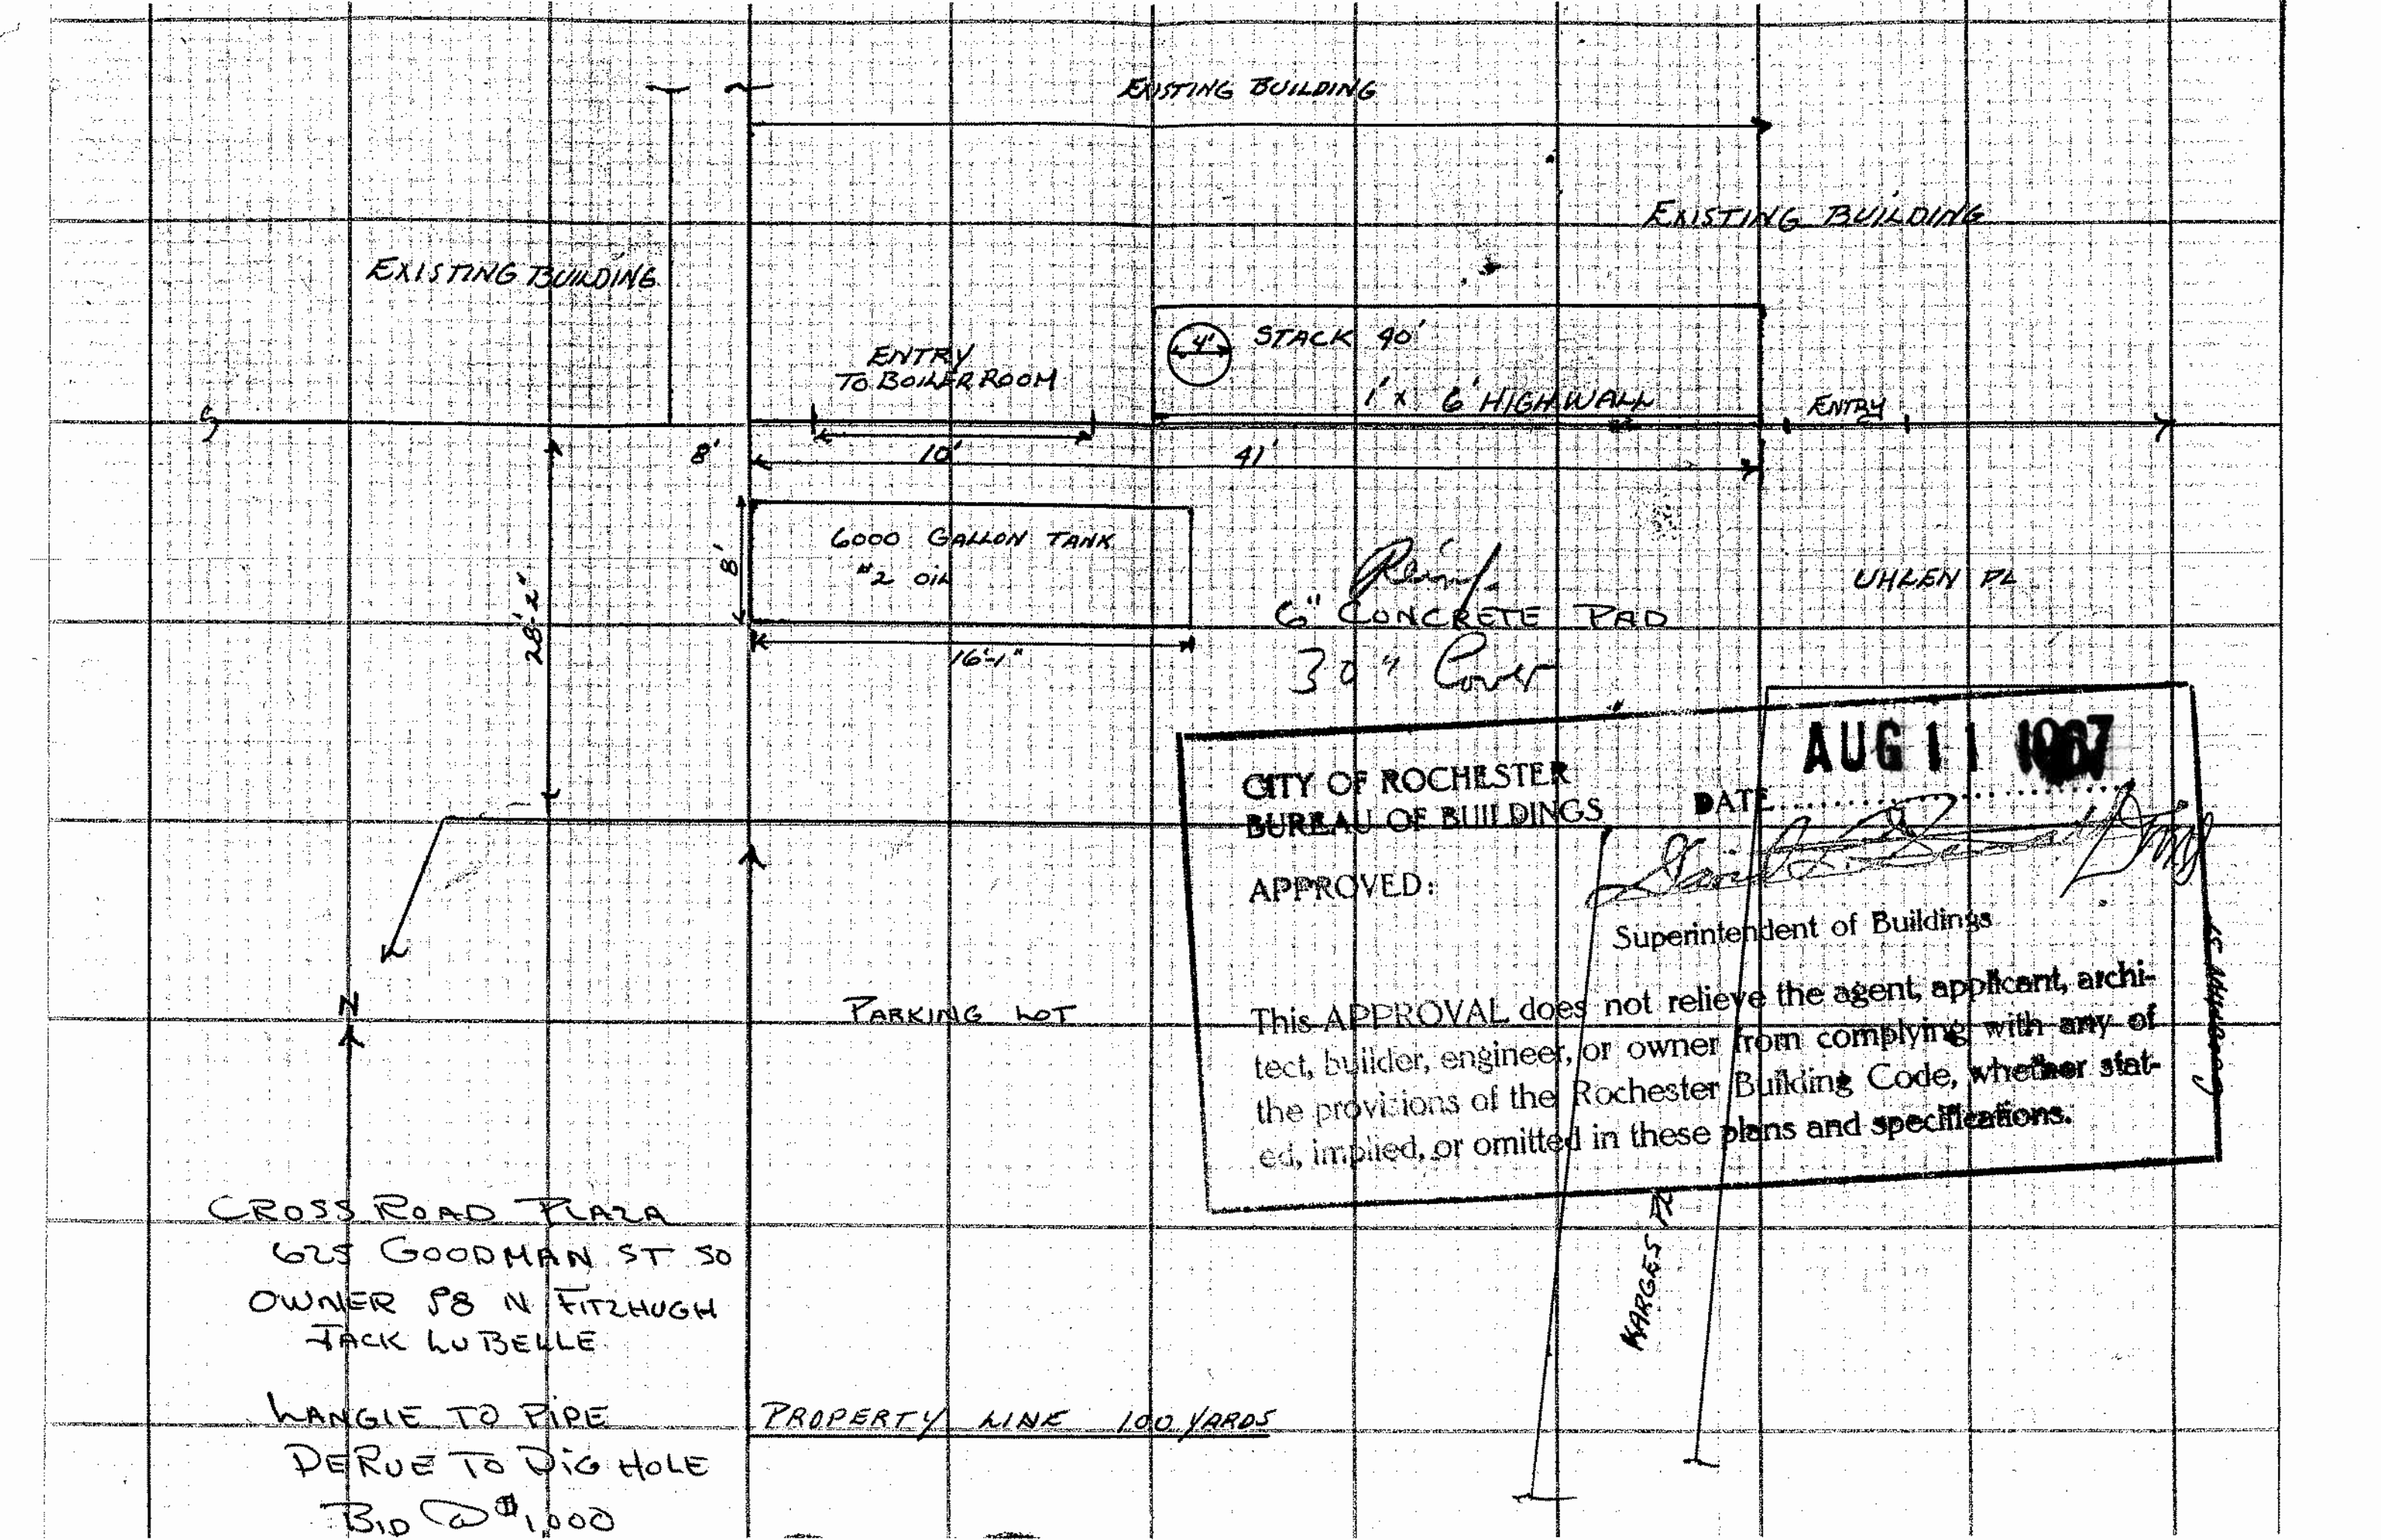 EXISTING BUILDING
EXISTING BUILDING
EXISTING BUILDING
4'
STACK 40'
ENTRY
TO BOILER ROOM
1' x 6' HIGH WALL
ENTRY
8'
10'
41'
6000 GALLON TANK
#2 OIL
8'
16'-1"
28'-2"
Reinf.
6" CONCRETE PAD
30" Cover
UHLEN PL
AUG 11 1967
CITY OF ROCHESTER
BUREAU OF BUILDINGS
DATE
APPROVED:
Superintendent of Buildings
This APPROVAL does not relieve the agent, applicant, archi-
tect, builder, engineer, or owner from complying with any of
the provisions of the Rochester Building Code, whether stat-
ed, implied, or omitted in these plans and specifications.
N
PARKING LOT
CROSS ROAD PLAZA
625 GOODMAN ST SO
OWNER 98 N FITZHUGH
JACK LUBELLE
LANGIE TO PIPE
DERUE TO DIG HOLE
BID @ $1,000
PROPERTY LINE 100 YARDS
KARGES PL
GOODMAN ST